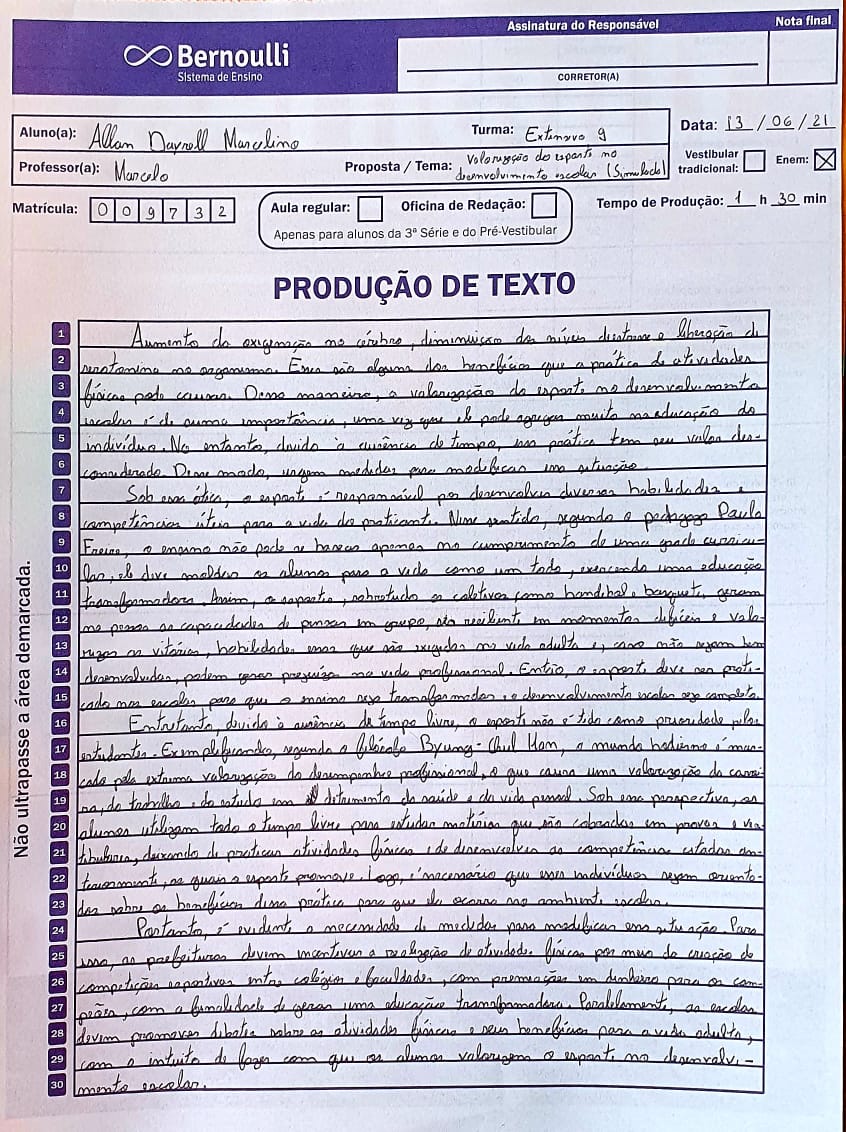 Assinatura do Responsável
Nota final
Bernoulli
Sistema de Ensino
CORRETOR(A)
Aluno(a): Allan Dayrell Marcelino
Turma: Extensivo 9
Data: 13 / 06 / 21
Professor(a): Marcelo
Proposta / Tema: Valorização do esporte no desenvolvimento escolar (Simulado)
Vestibular tradicional:
Enem: X
Matrícula: 0 0 9 7 3 2
Aula regular:
Oficina de Redação:
Apenas para alunos da 3ª Série e do Pré-Vestibular
Tempo de Produção: 1 h 30 min
PRODUÇÃO DE TEXTO
Não ultrapasse a área demarcada.
1 Aumento da oxigenação no cérebro, diminuição dos níveis de e liberação de
2 no organismo. Esses são alguns dos benefícios que a prática de atividades
3 físicas pode causar. Dessa maneira, a valorização do esporte no desenvolvimento
4 escolar é de suma importância, uma vez que ele pode agregar muito na educação do
5 indivíduo. No entanto, devido à ausência de tempo, essa prática tem seu valor des-
6 considerado. Desse modo, urgem medidas para modificar essa situação.
7 Sob essa ótica, o esporte é responsável por desenvolver diversas habilidades e
8 competências úteis para a vida do praticante. Nesse sentido, segundo o pedagogo Paulo
9 Freire, o ensino não pode se basear apenas no cumprimento de uma grade curricu-
10 lar, ele deve moldar os alunos para a vida como um todo, exercendo uma educação
11 transformadora. Assim, os esportes, sobretudo os coletivos como handibal e basquete, geram
12 na pessoa as capacidades de pensar em grupo, ser resiliente em momentos difíceis e valo-
13 rizar as vitórias, habilidades essas que são exigidas na vida adulta e, caso não sejam bem
14 desenvolvidas, podem gerar prejuízo na vida profissional. Então, o esporte deve ser prati-
15 cado nas escolas para que o ensino seja transformador e o desenvolvimento escolar seja completo.
16 Entretanto, devido à ausência de tempo livre, o esporte não é tido como prioridade pelos
17 estudantes. Exemplificando, segundo o filósofo Byung-Chul Han, o mundo hodierno é mar-
18 cado pela extrema valorização do desempenho profissional, o que causa uma valorização da carrei-
19 ra, do trabalho e do estudo em detrimento da saúde e da vida pessoal. Sob essa perspectiva, os
20 alunos utilizam todo o tempo livre para estudar matérias que são cobradas em provas e ves-
21 tibulares, deixando de praticar atividades físicas e de desenvolver as competências citadas an-
22 teriormente, as quais o esporte promove. Logo, é necessário que esses indivíduos sejam orienta-
23 dos sobre os benefícios dessa prática para que ela ocorra no ambiente escolar.
24 Portanto, é evidente a necessidade de medidas para modificar essa situação. Para
25 isso, as prefeituras devem incentivar a realização de atividades físicas por meio da criação de
26 competições esportivas entre colégios e faculdades, com premiações em dinheiro para os cam-
27 peões, com a finalidade de gerar uma educação transformadora. Paralelamente, as escolas
28 devem promover debates sobre as atividades físicas e seus benefícios para a vida adulta,
29 com o intuito de fazer com que os alunos valorizem o esporte no desenvolvi-
30 mento escolar.